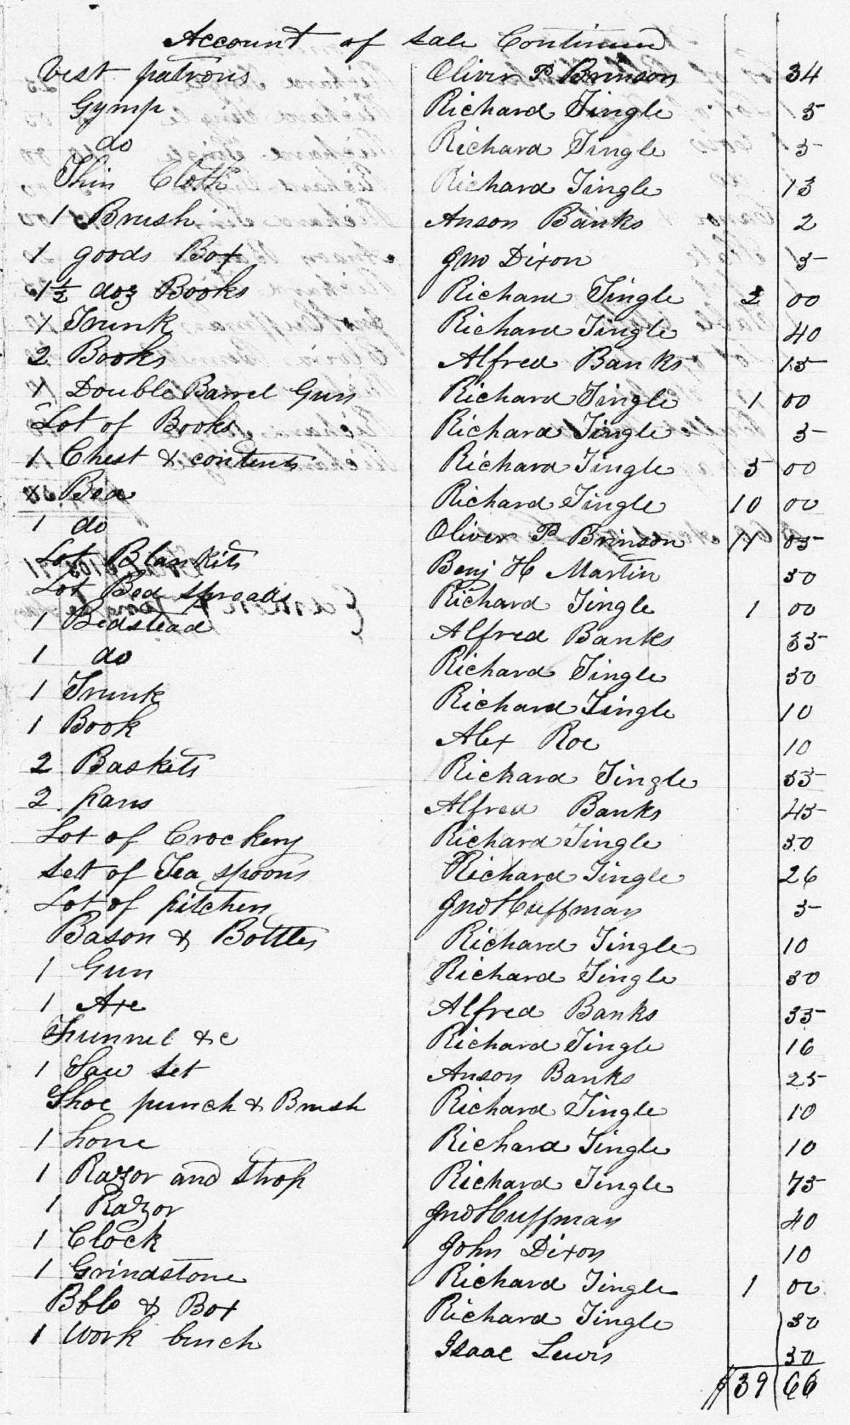 Account of Sale Continued
Vest patrons Oliver P Brinson 34
Gymp Richard Tingle 5
do Richard Tingle 5
Thin Cloth Richard Tingle 13
1 Brush Anson Banks 2
1 goods Box Jno Dixon 5
1½ doz Books Richard Tingle 2 00
1 Trunk Richard Tingle 40
2 Books Alfred Banks 15
1 Double Barrel Gun Richard Tingle 1 00
Lot of Books Richard Tingle 5
1 Chest & contents Richard Tingle 5 00
Bed Richard Tingle 10 00
1 do Oliver P Brinson 11 05
Lot Blankits Benj H Martin 50
Lot Bed spreads Richard Tingle 1 00
1 Bedstead Alfred Banks 55
1 do Richard Tingle 50
1 Trunk Richard Tingle 10
1 Book Alex Roe 10
2 Baskets Richard Tingle 55
2 pans Alfred Banks 45
Lot of Crockery Richard Tingle 50
set of Tea spoons Richard Tingle 26
Lot of pitchers Jno Huffman 5
Bason & Bottles Richard Tingle 10
1 Gun Richard Tingle 50
1 Axe Alfred Banks 55
Funnel &c Richard Tingle 16
1 Saw Set Anson Banks 25
Shoe punch & Brush Richard Tingle 10
1 hone Richard Tingle 10
1 Razor and Strop Richard Tingle 75
1 Razor Jno Huffman 40
1 Clock John Dixon 10
1 Grindstone Richard Tingle 1 00
Bbls & Box Richard Tingle 50
1 Work binch Isaac Lewis 50
$39 66